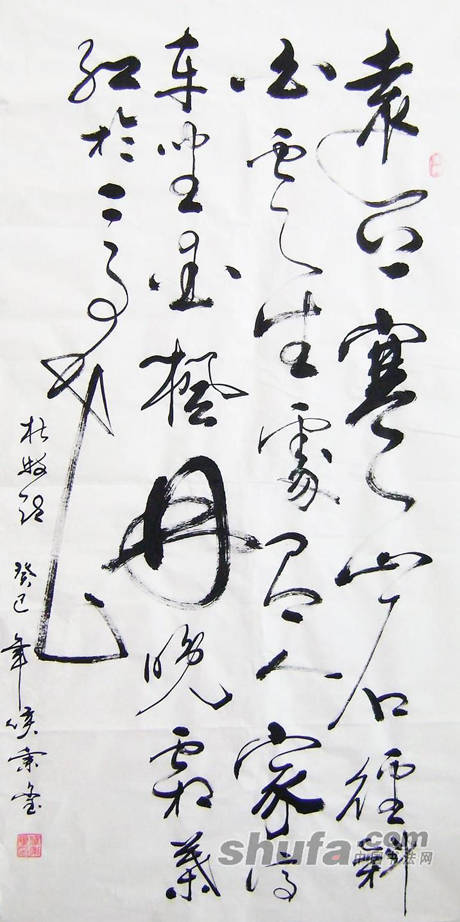 遠上寒山石徑斜
白雲生處有人家停
車坐愛楓林晚霜葉
紅於二月花
杜牧詩 癸巳年
shufa.com
中国书法网